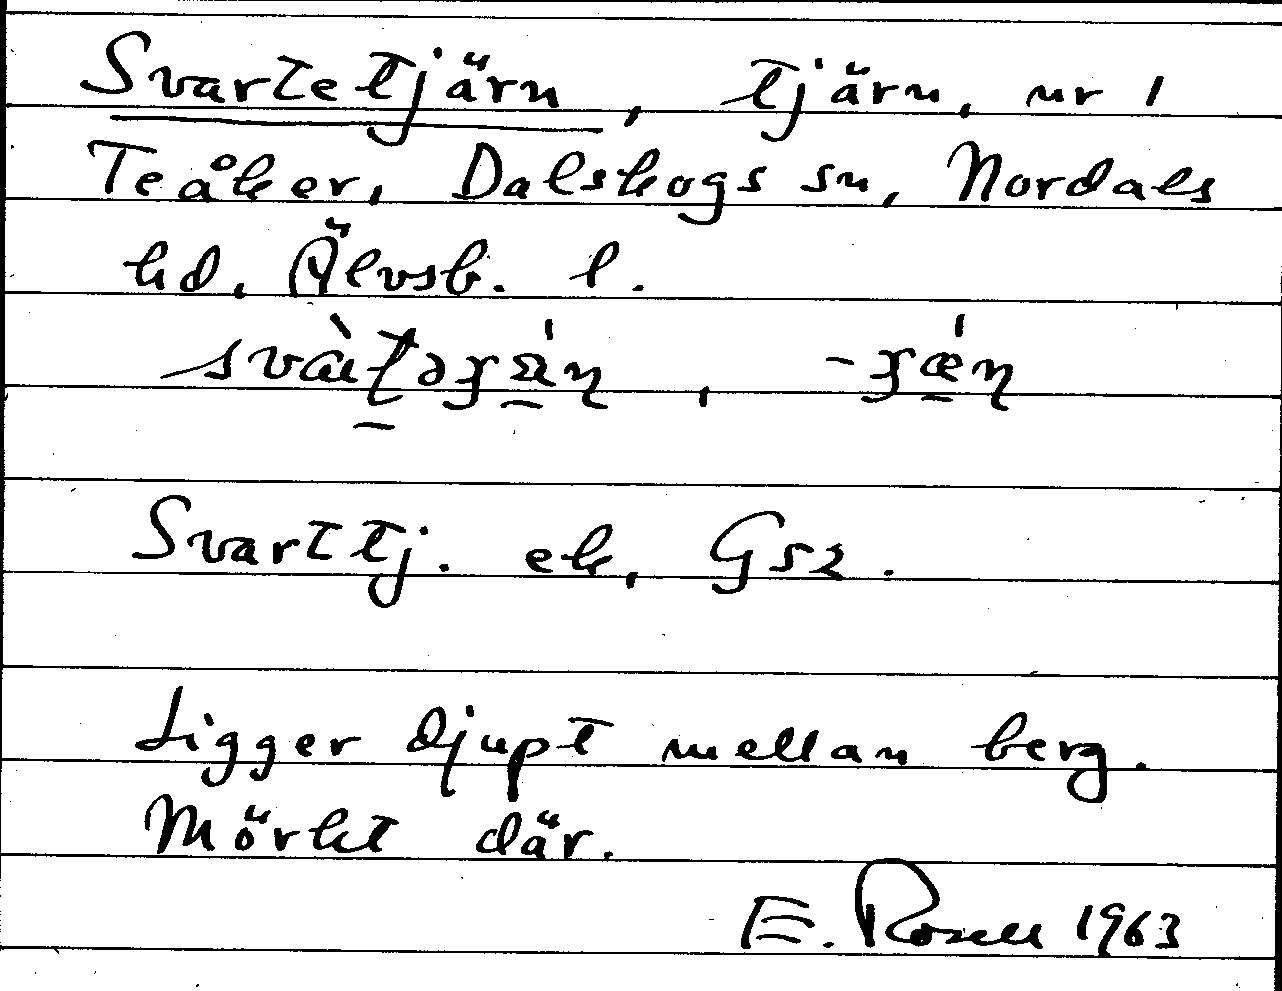 Svartetjärn, tjärn, nr 1
Teåker, Dalskogs sn, Nordals
hd. Älvsb. l.
Svarttj. ek, G52.
Ligger djupt mellan berg.
Mörkt där.
E. Rosell 1963